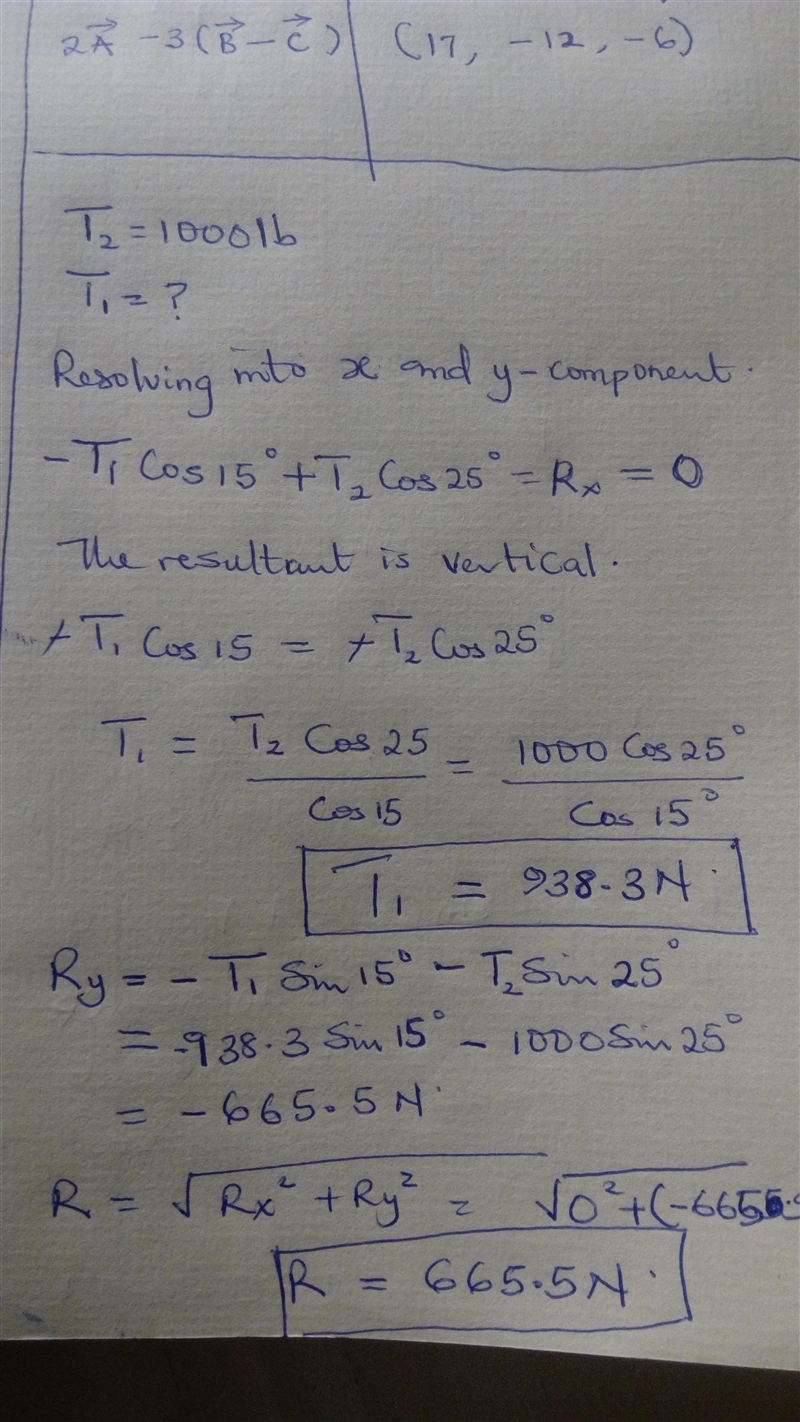 2A⃗ -3(B⃗-C⃗) | (17, -12, -6)
T₂ = 1000lb
T₁ = ?
Resolving into x and y-component.
-T₁ Cos 15° + T₂ Cos 25° = Rx = 0
The resultant is vertical.
+T₁ Cos 15 = +T₂ Cos 25°
T₁ = T₂ Cos 25 / Cos 15 = 1000 Cos 25° / Cos 15°
T₁ = 938.3 N.
Ry = - T₁ Sin 15° - T₂ Sin 25°
= -938.3 Sin 15° - 1000 Sin 25°
= -665.5 N.
R = √Rx² + Ry² = √0² + (-665.5
R = 665.5 N.